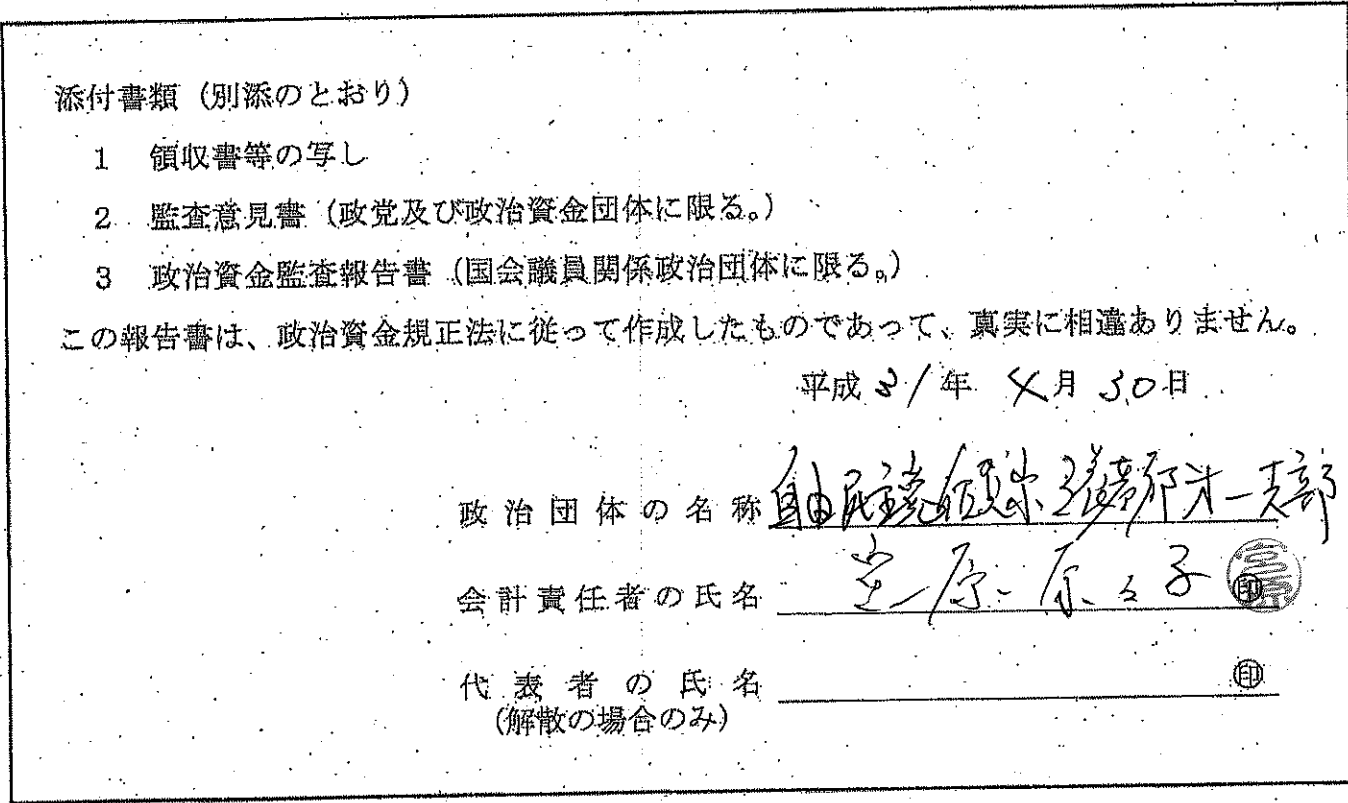 添付書類（別添のとおり）
1 領収書等の写し
2 監査意見書（政党及び政治資金団体に限る。）
3 政治資金監査報告書（国会議員関係政治団体に限る。）
この報告書は、政治資金規正法に従って作成したものであって、真実に相違ありません。
平成31年 4月 30日
政治団体の名称 自由民主党 第一支部
会計責任者の氏名 子 印
代表者の氏名 印
(解散の場合のみ)